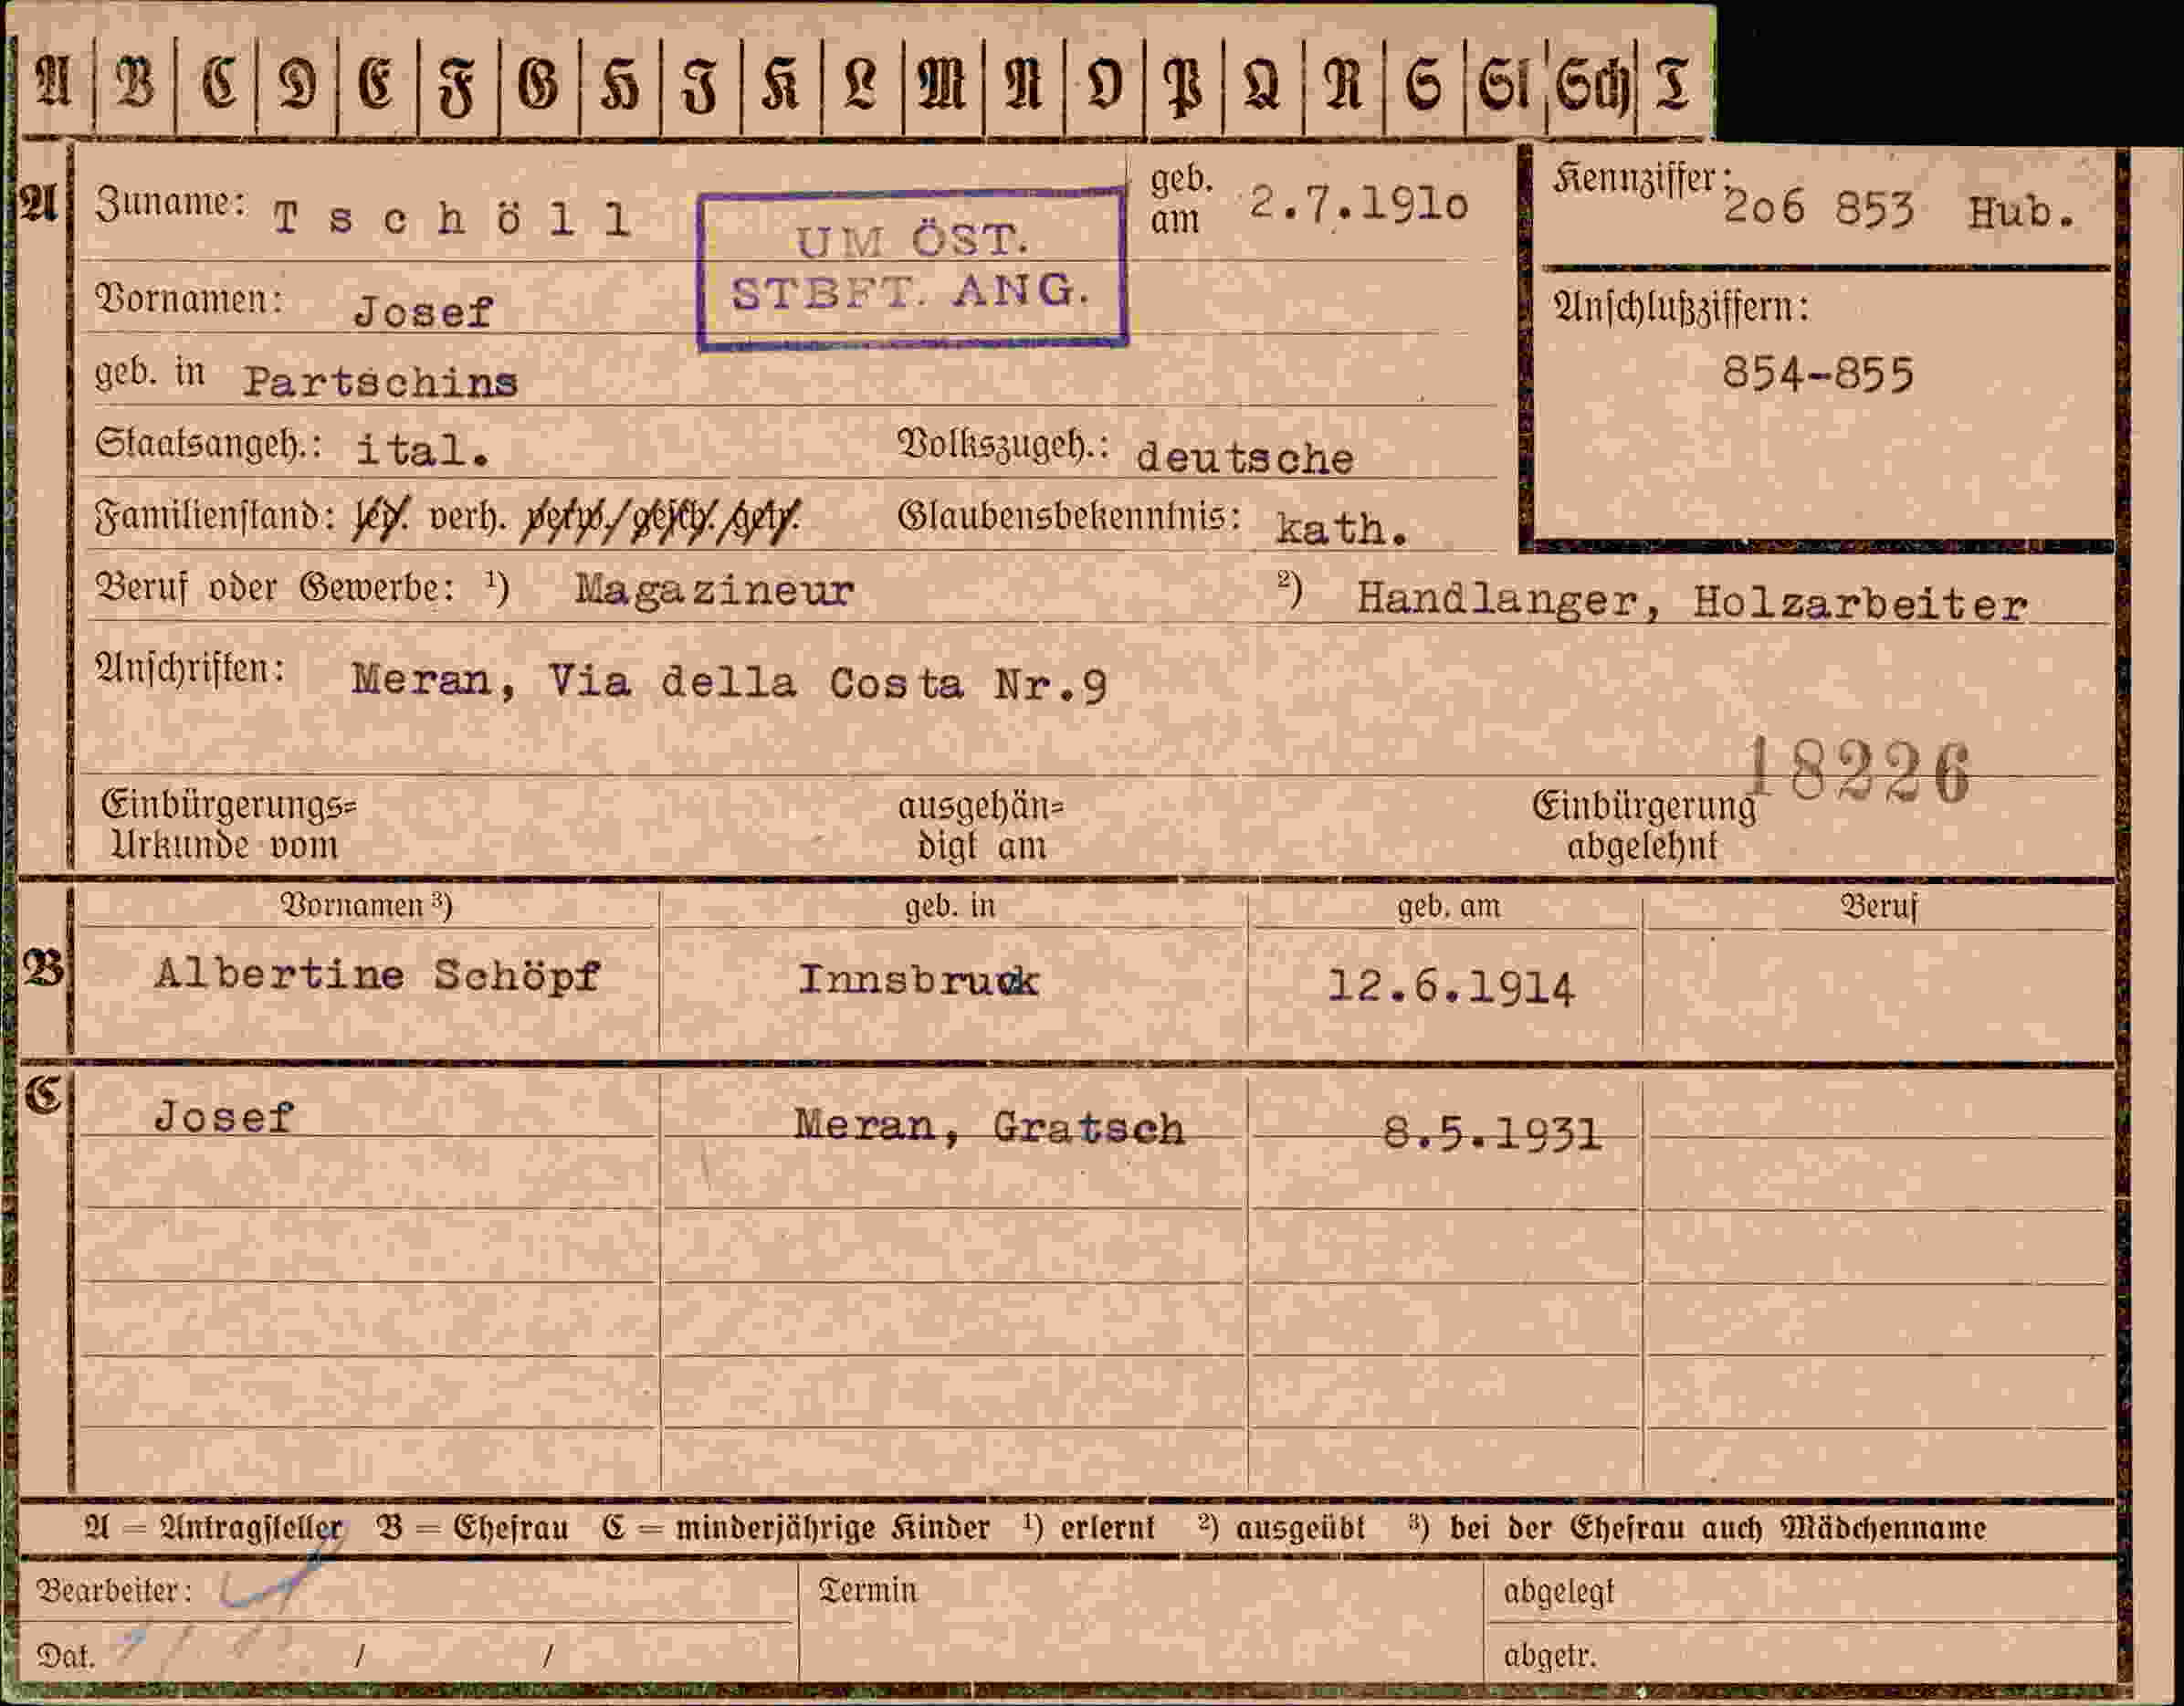 A B C D E F G H I K L M N O P Q R S St Sch T
A Zuname: Tschöll geb. am 2.7.1910 Kennziffer: 206 853 Hub.
UM ÖST.
STBFT. ANG.
Vornamen: Josef Anschlußziffern:
geb. in Partschins 854-855
Staatsangeh.: ital. Volkszugeh.: deutsche
Familienstand: led. verh. verw./gesch./getr. Glaubensbekenntnis: kath.
Beruf oder Gewerbe: ¹) Magazineur ²) Handlanger, Holzarbeiter
Anschriften: Meran, Via della Costa Nr.9
18226
Einbürgerungs= ausgehän= Einbürgerung
Urkunde vom digt am abgelehnt
Vornamen ³) geb. in geb. am Beruf
B Albertine Schöpf Innsbruck 12.6.1914
C Josef Meran, Gratsch 8.5.1931
A = Antragsteller B = Ehefrau C = minderjährige Kinder ¹) erlernt ²) ausgeübt ³) bei der Ehefrau auch Mädchenname
Bearbeiter: Termin abgelegt
Dat. / / abgetr.